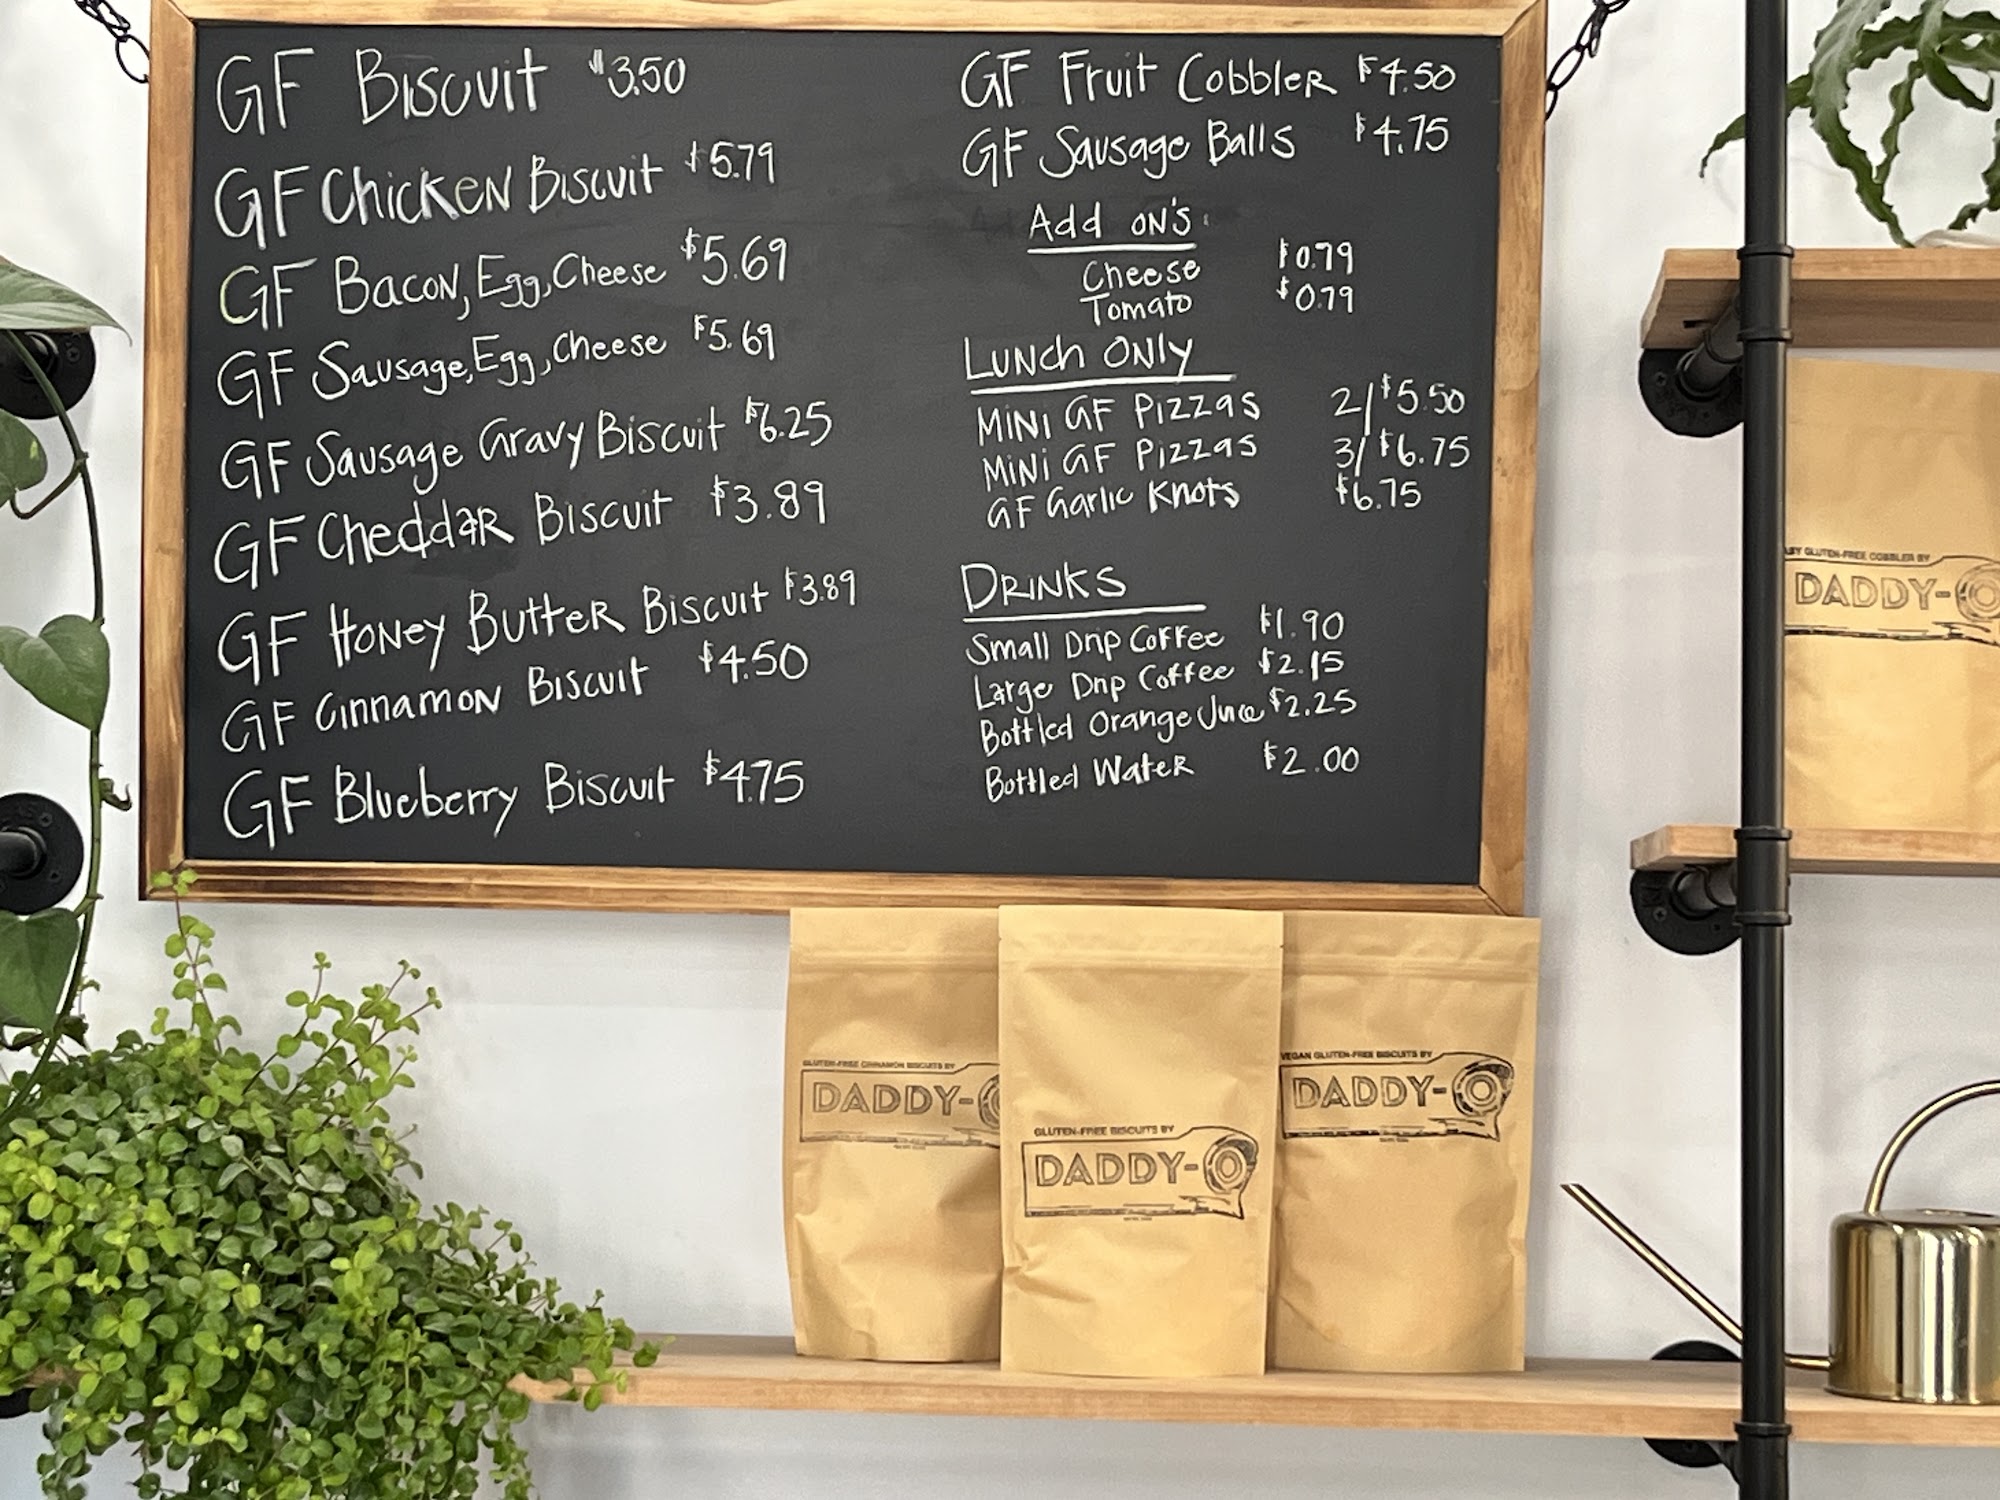 GF Biscuit $3.50
GF Chicken Biscuit $5.79
GF Bacon, Egg, Cheese $5.69
GF Sausage, Egg, Cheese $5.69
GF Sausage Gravy Biscuit $6.25
GF Cheddar Biscuit $3.89
GF Honey Butter Biscuit $3.89
GF Cinnamon Biscuit $4.50
GF Blueberry Biscuit $4.75
GF Fruit Cobbler $4.50
GF Sausage Balls $4.75
Add on's
Cheese $0.79
Tomato $0.79
Lunch Only
Mini GF Pizzas 2/$5.50
Mini GF Pizzas 3/$6.75
GF Garlic Knots $6.75
Drinks
Small Drip Coffee $1.90
Large Drip Coffee $2.15
Bottled Orange Juice $2.25
Bottled Water $2.00
GLUTEN-FREE COBBLER BY
DADDY-O
GLUTEN-FREE CINNAMON BISCUITS BY
DADDY-O
GLUTEN-FREE BISCUITS BY
DADDY-O
VEGAN GLUTEN-FREE BISCUITS BY
DADDY-O